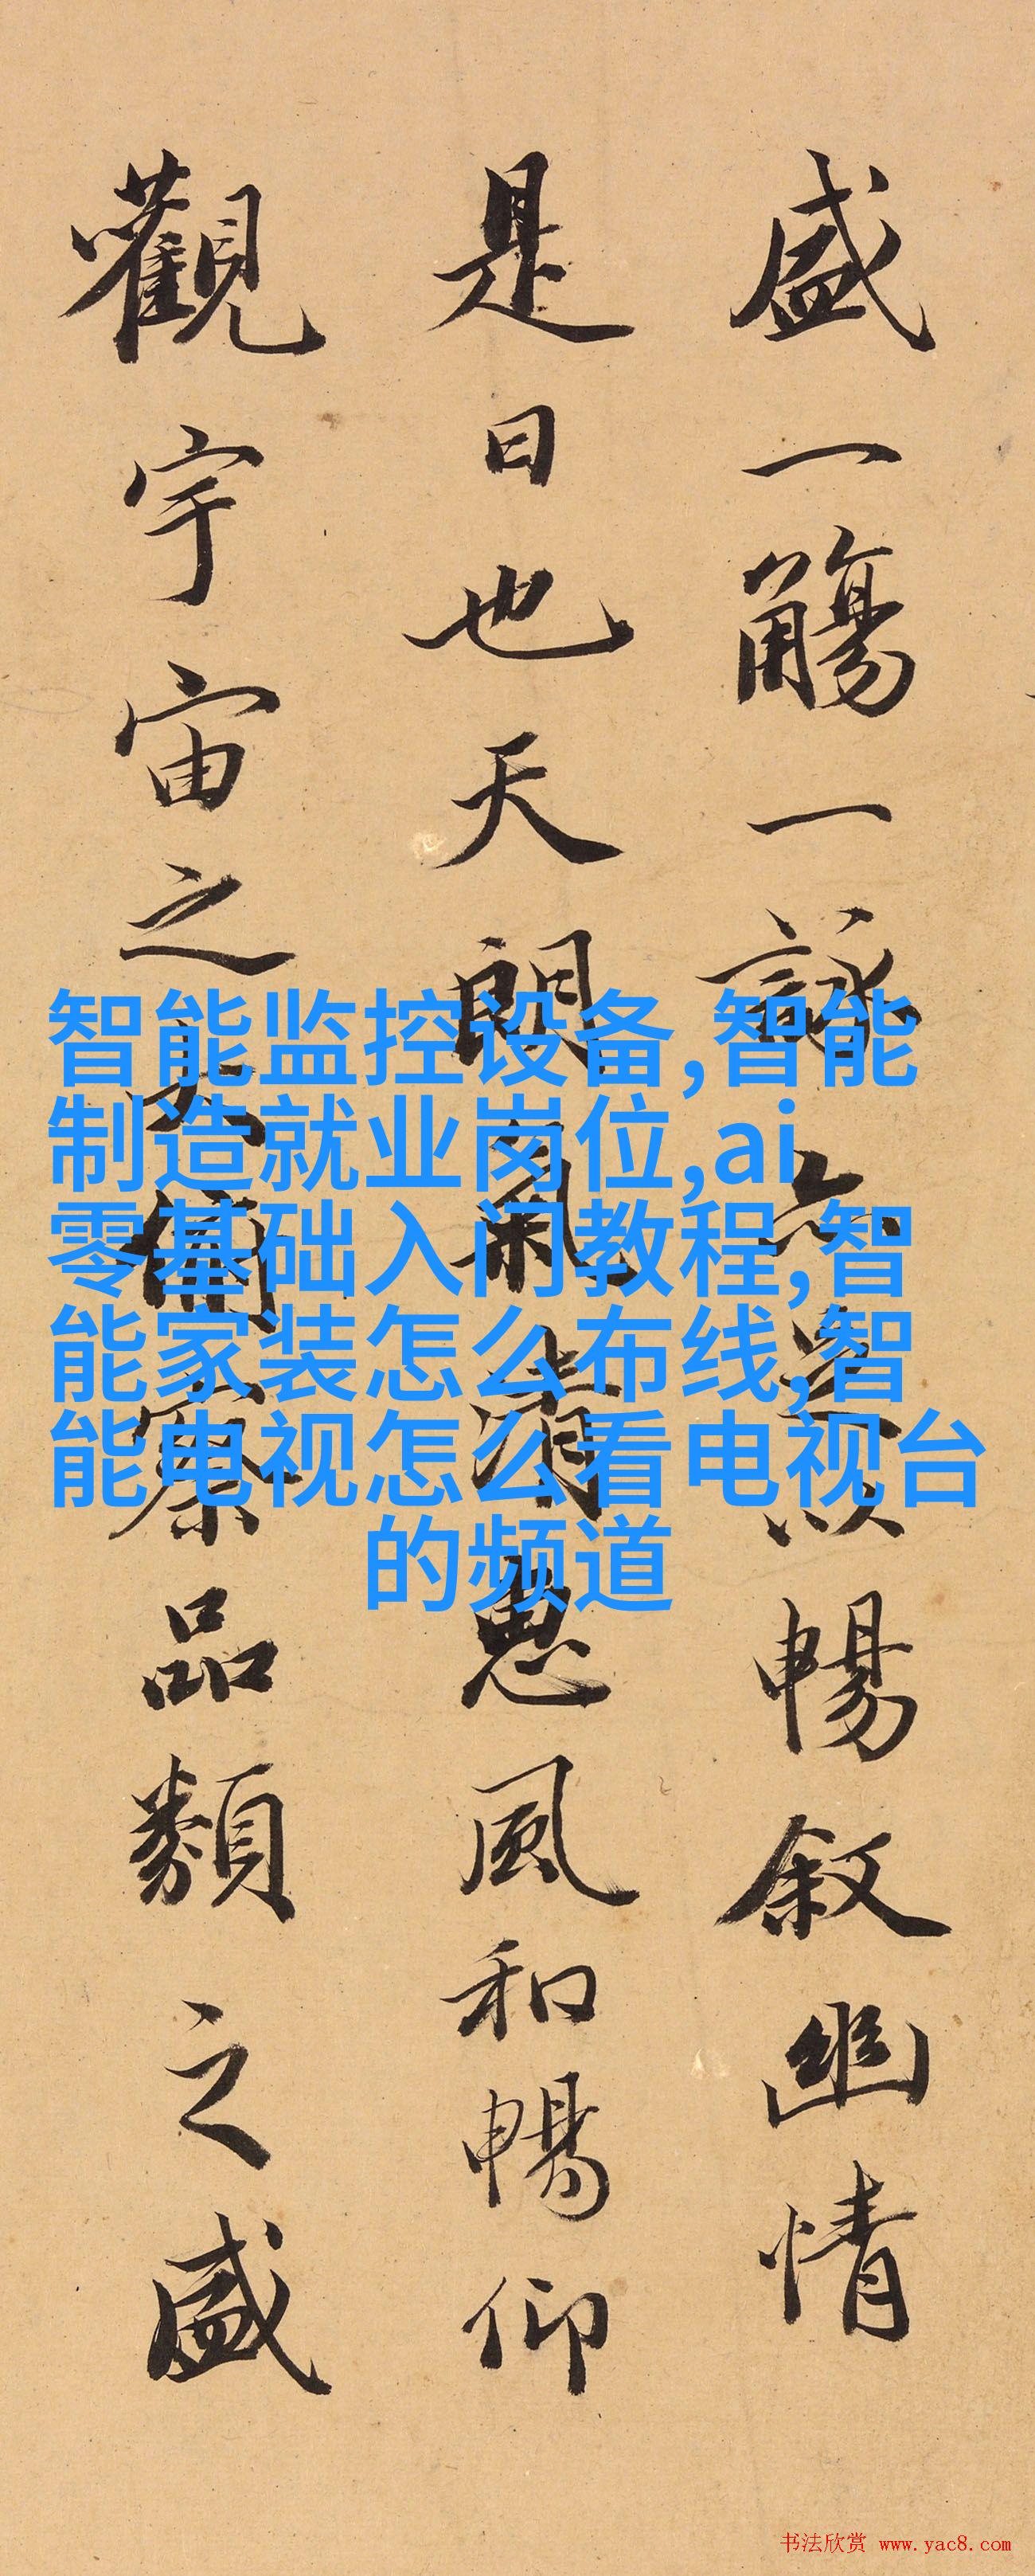 盛一觴一詠亦足以暢叙幽情
是日也天朗氣清惠風和暢仰
觀宇宙之大俯察品類之盛
智能监控设备,智能
制造就业岗位,ai
零基础入门教程,智
能家装怎么布线,智
能电视怎么看电视台
的频道
书法欣赏 www.yac8.com